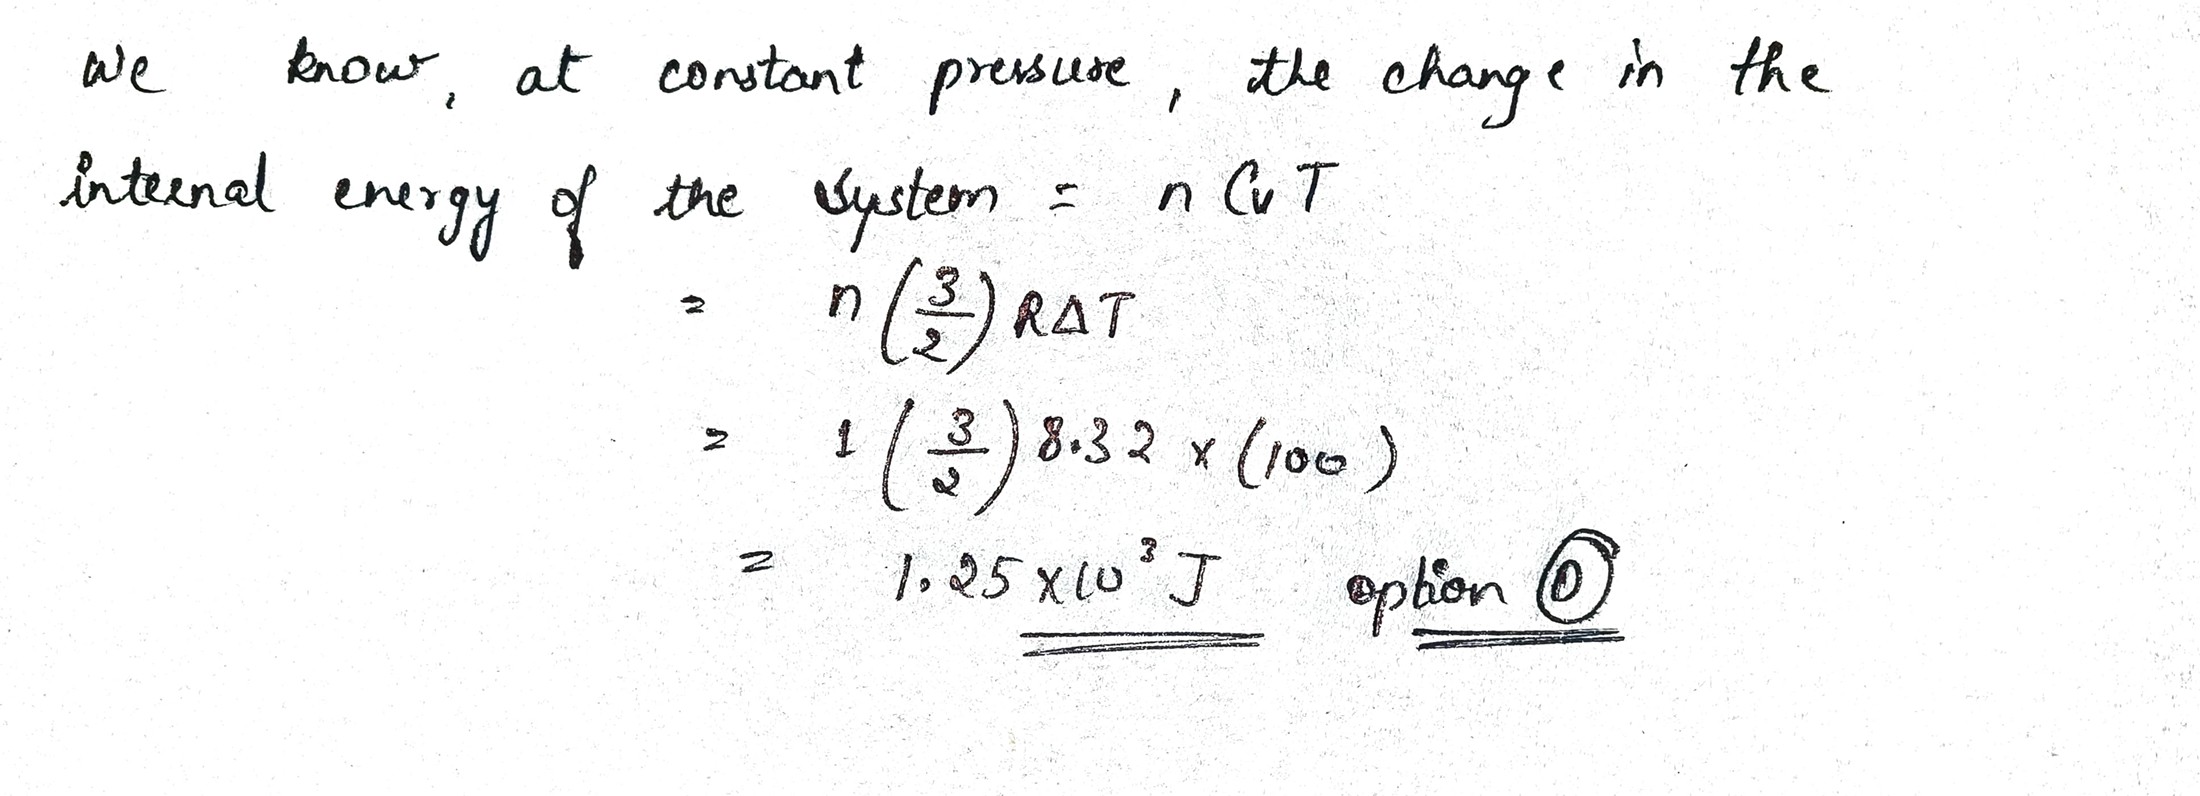 We know, at constant pressure, the change in the
internal energy of the system = n Cv T
= n (3/2) R Δ T
= 1 (3/2) 8.32 x (100)
= 1.25 x 10³ J option D